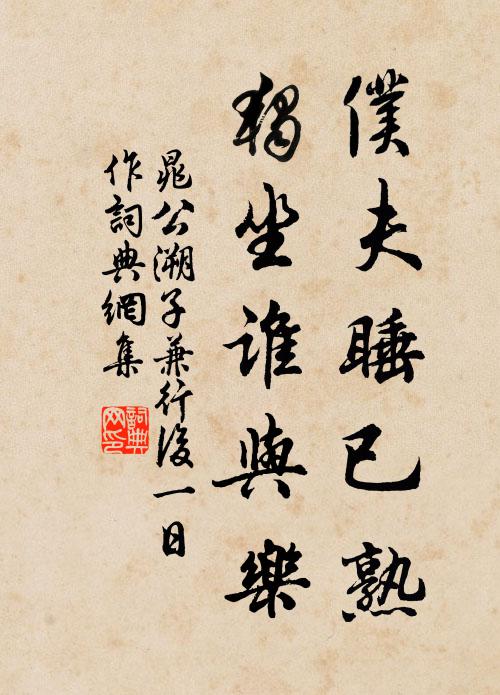 僕夫睡已熟
獨坐誰與樂
晁公溯子兼行後一日
作詞典網集
詞典
网印